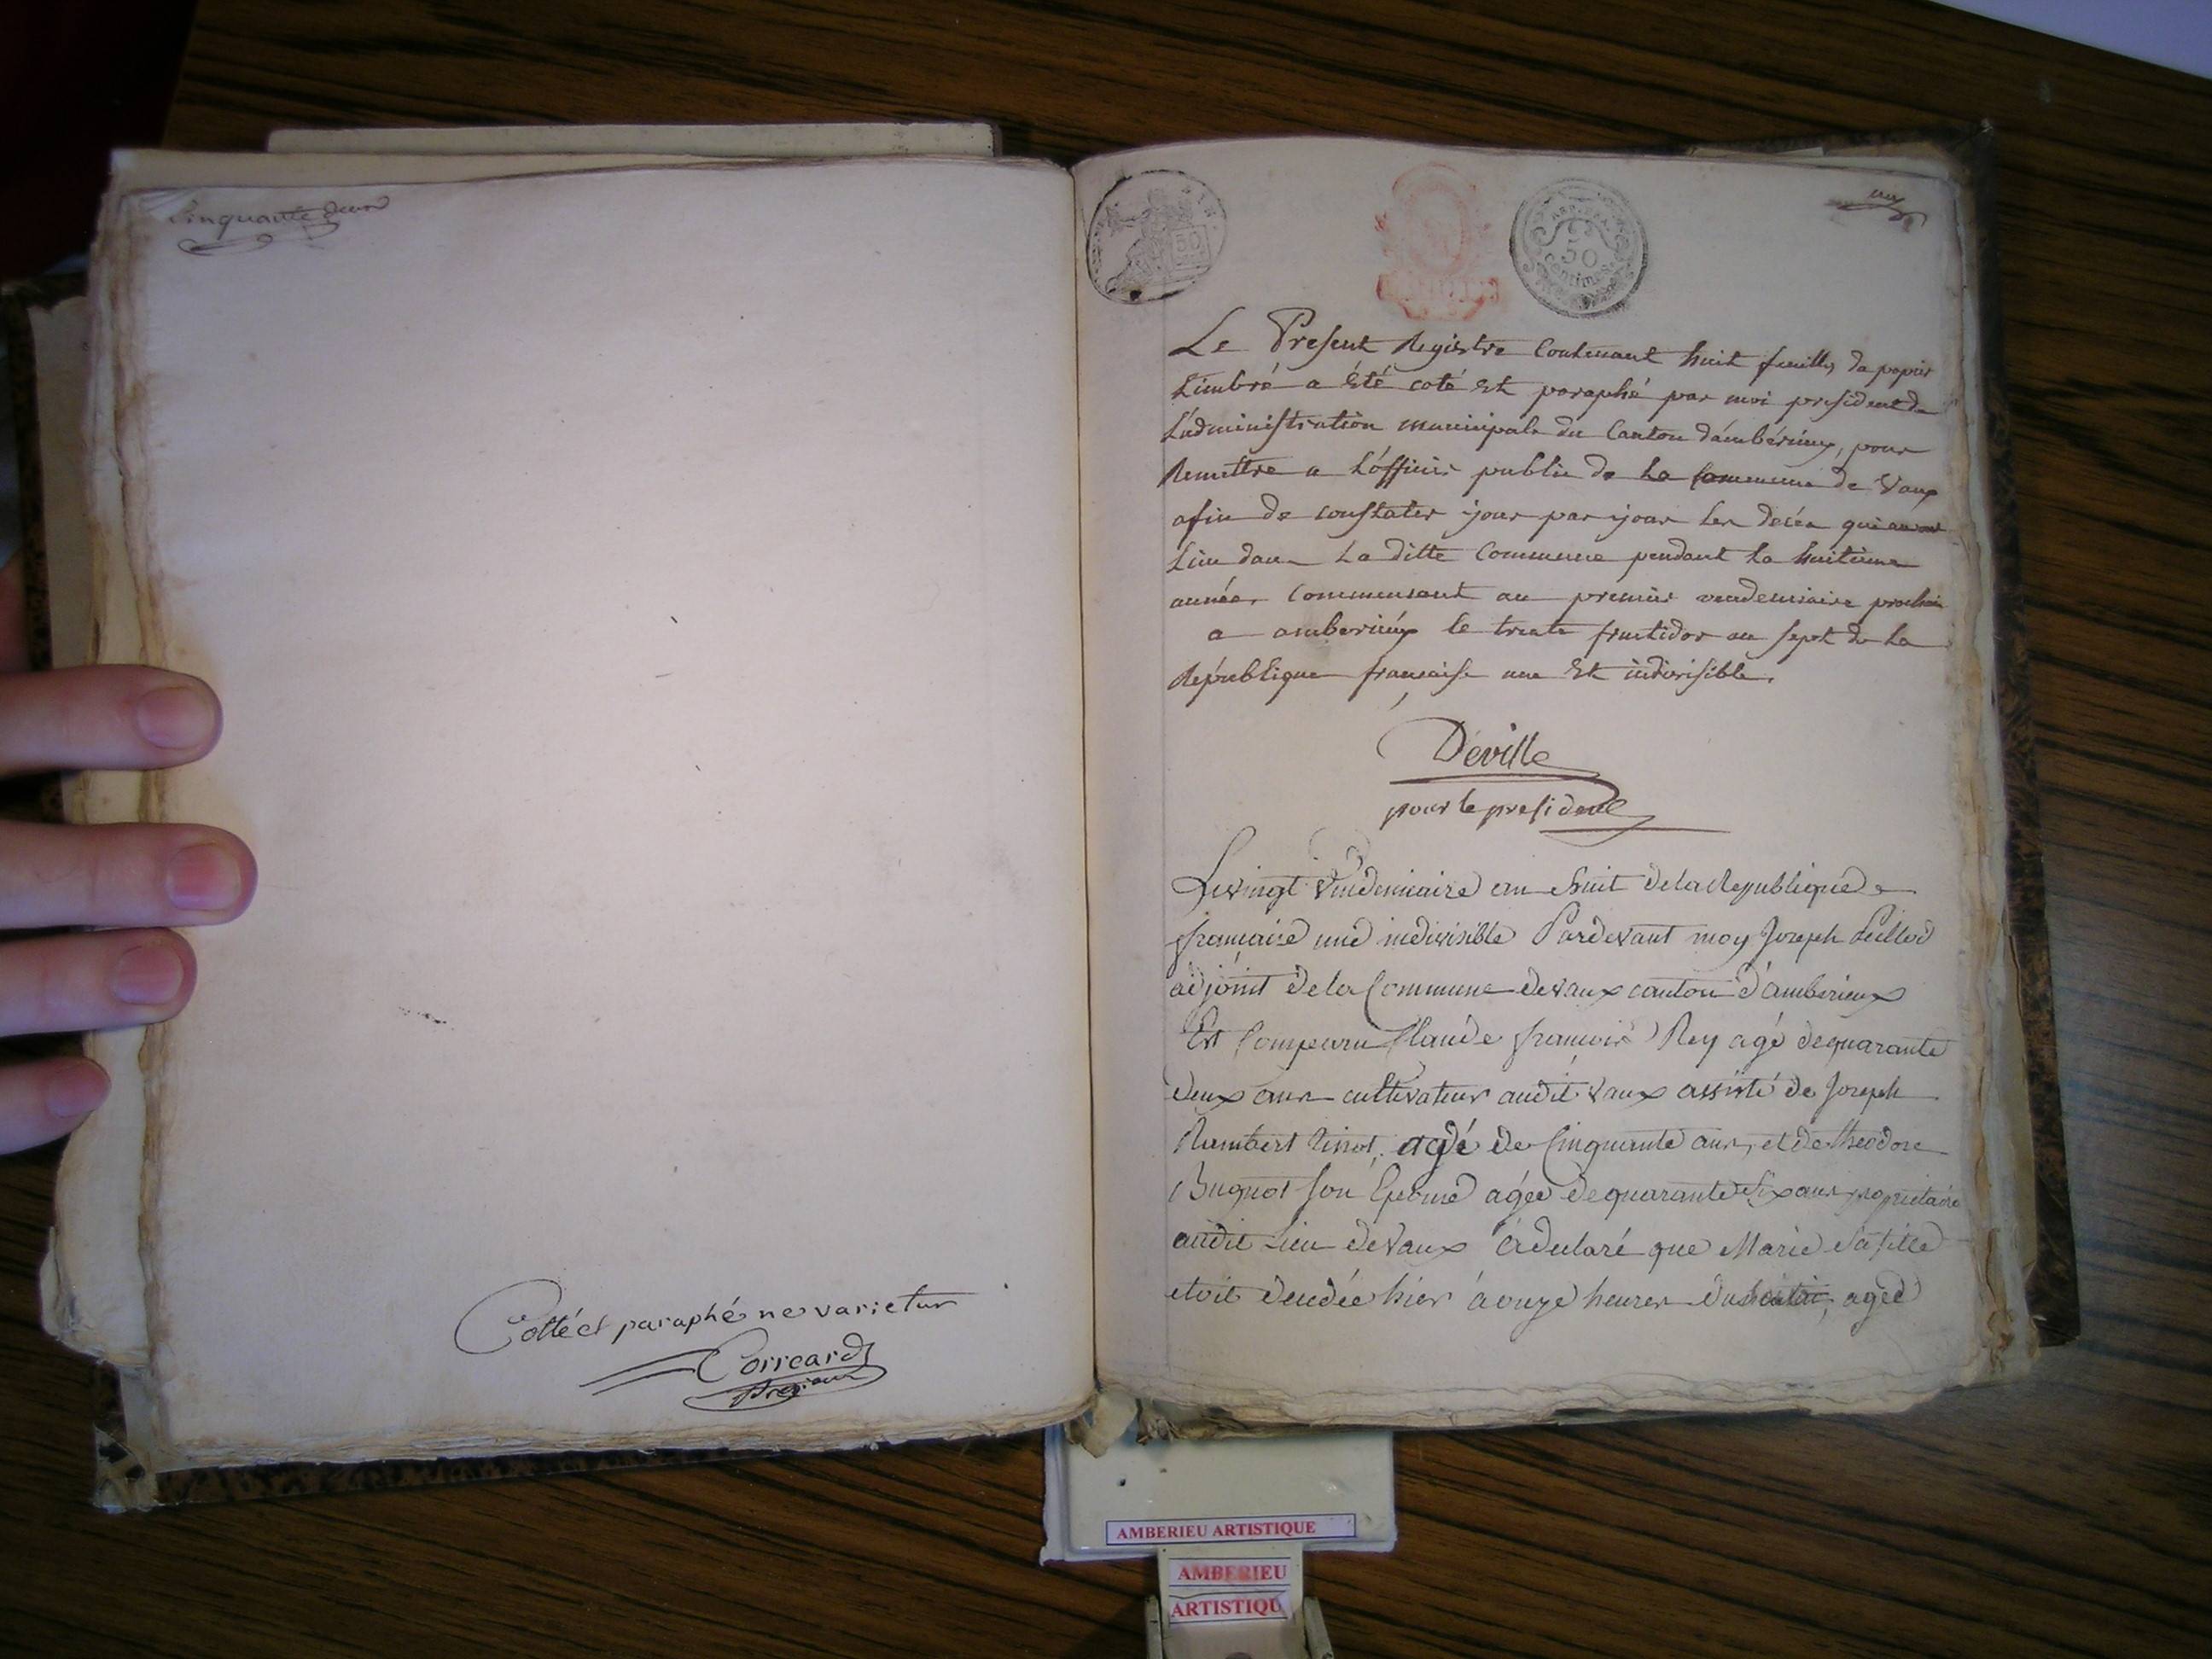 Cinquante deux
Cotté et paraphé ne varietur
Correard
50
50
centimes
Le Present Registre Contenant huit feuilles de papier
timbré a été coté Et paraphé par moi president de
L'administration municipale du Canton d'ambérieux, pour
Remettre a L'officier public de La Commune de Vaux
afin de constater jour par jour Les decés qui auront
Lieu dans La ditte Commune pendant La huitieme
année, Commensant au premier vendemiaire prochain
a amberieux le trente fructidor an sept de La
République francaise une Et indivisible.
Déville
pour le president
Le vingt Vendemiaire an huit de la Republique
française une indivisible Pardevant moy Joseph
adjoint de la Commune de Vaux canton d'amberieux
Est Comparu Claude françois Rey agé de quarante
deux ans cultivateur audit Vaux assisté de Joseph
Rambert agé de Cinquante ans, et de theodore
Bugnot son Epouse agée de quarante six ans propriétaire
audit Lieu de Vaux a declaré que Marie sa fille
etoit decedée hier à onze heures du agée
AMBERIEU ARTISTIQUE
AMBERIEU
ARTISTIQU